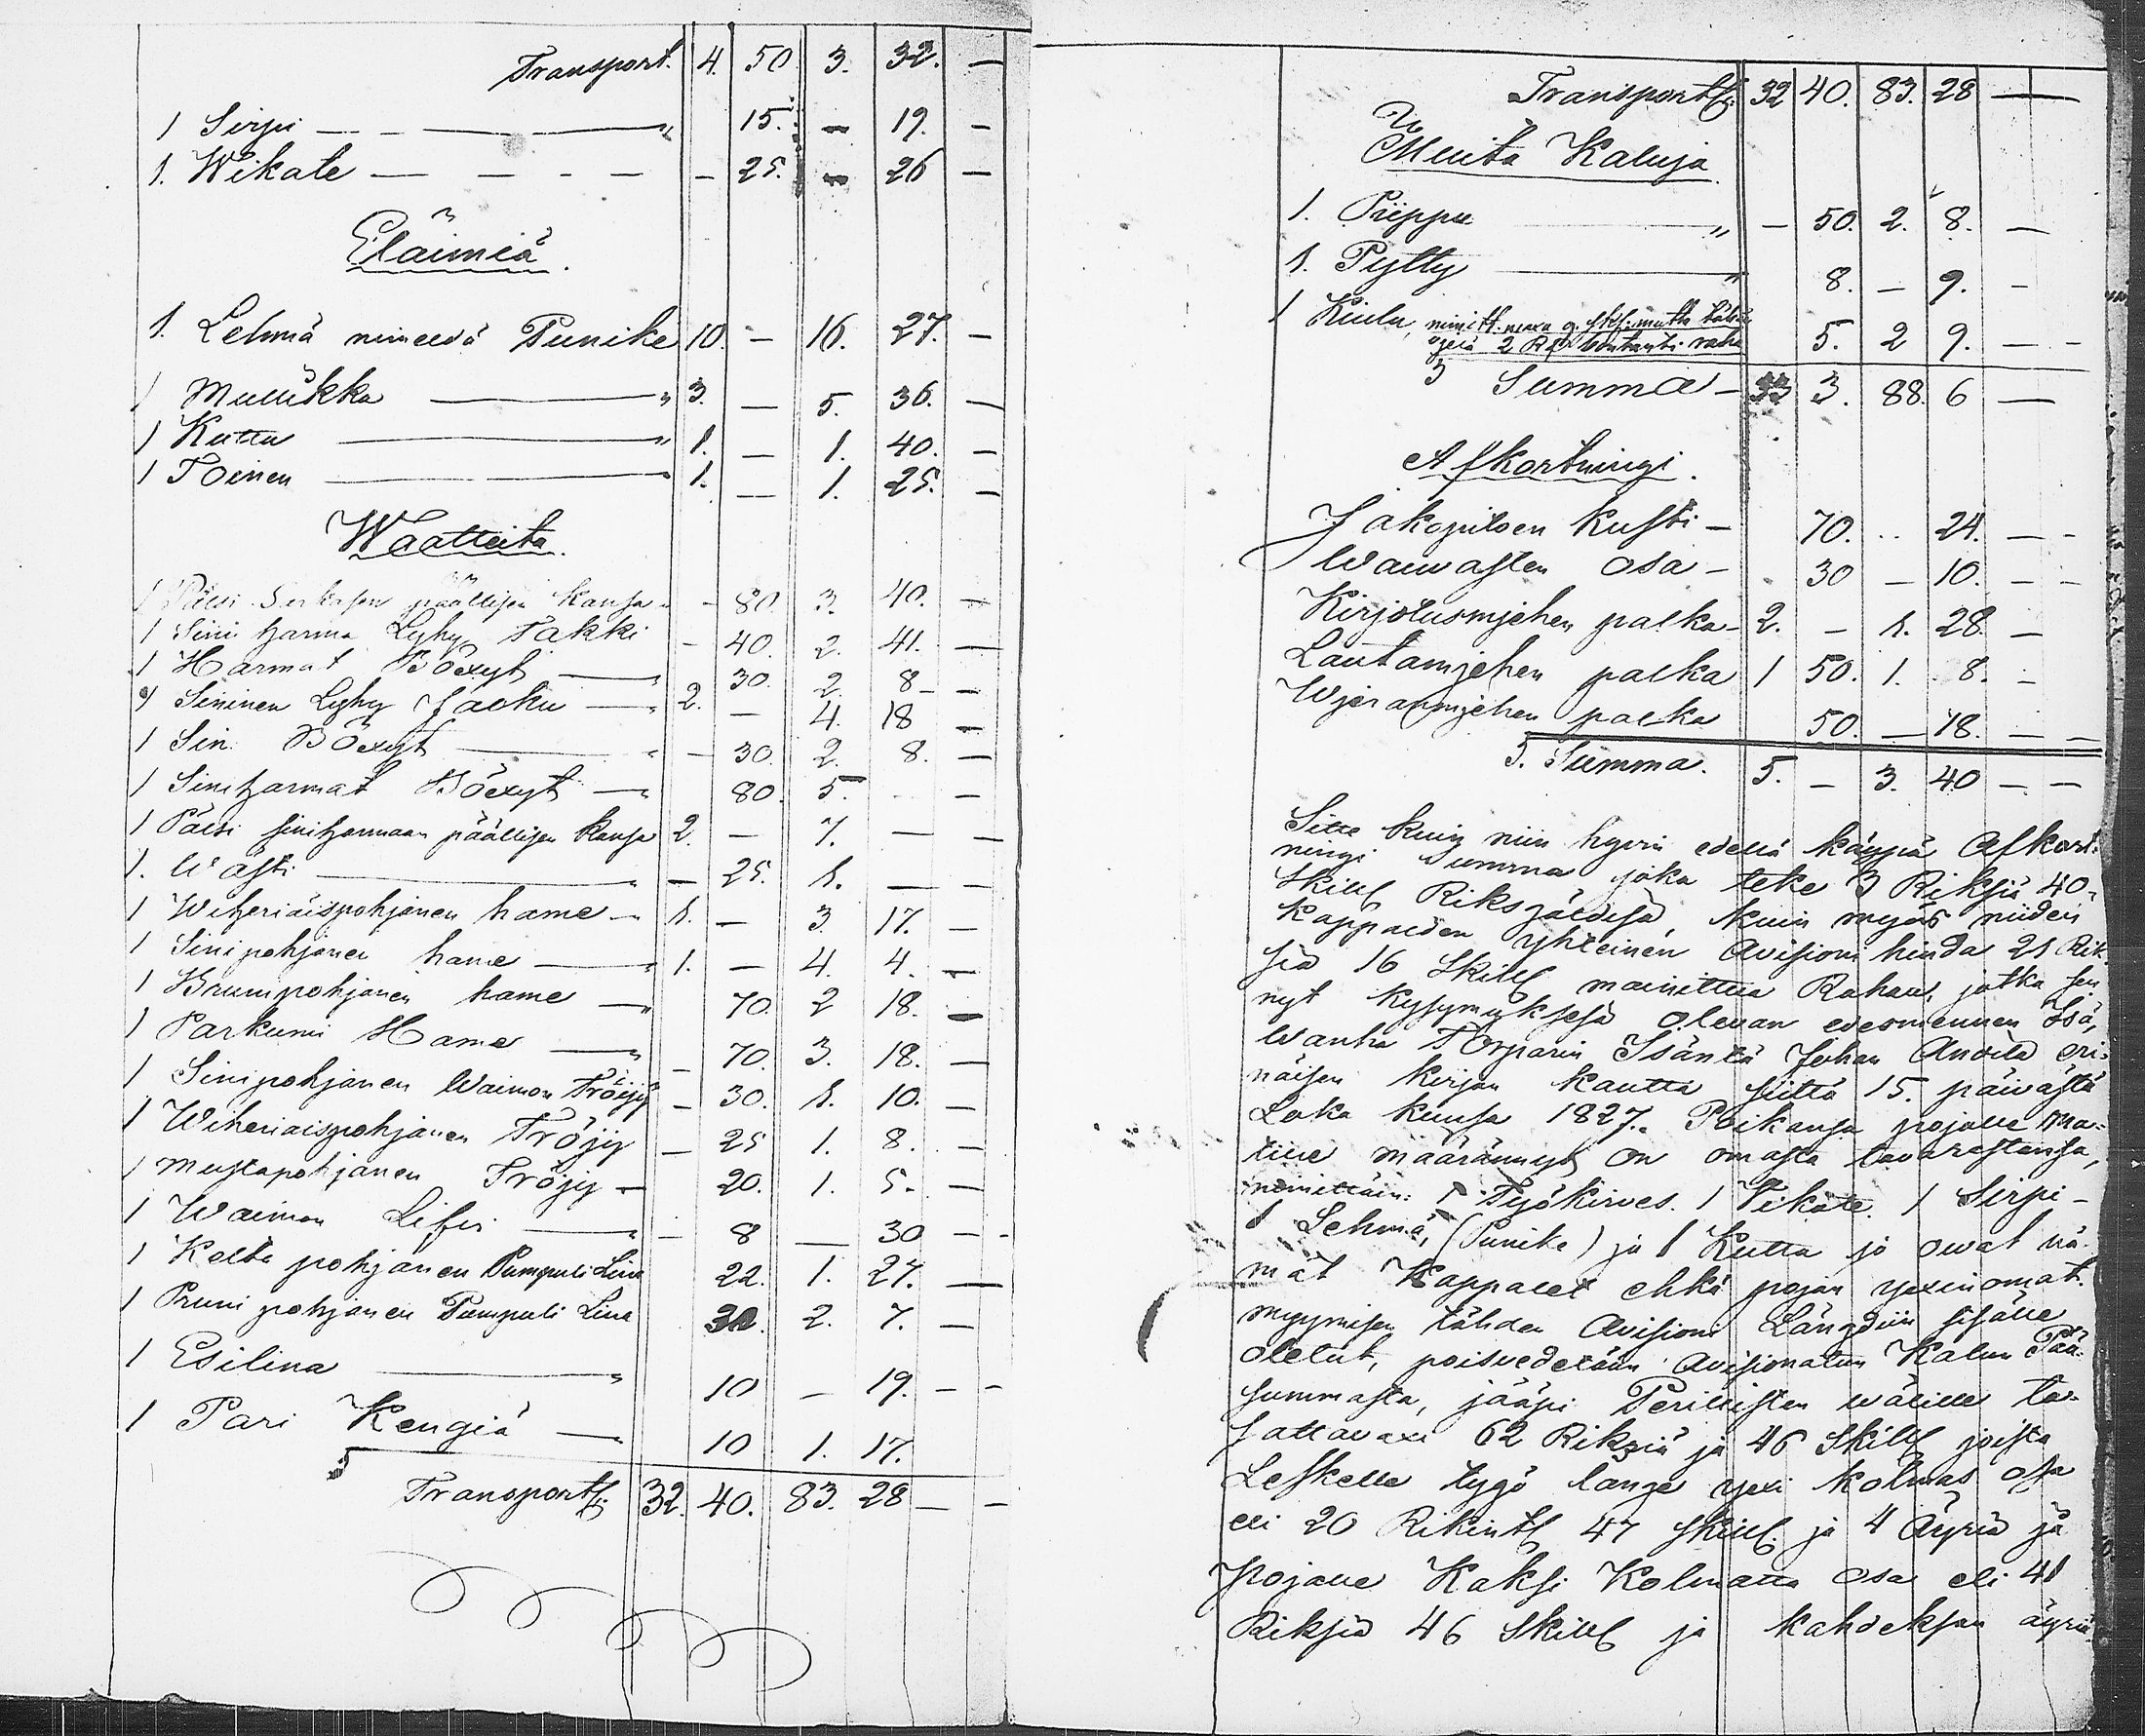 Transport. 4. 50. 3. 32. —
1 Sirpi — — — " 15. — 19. —
1. Wikate — — - - — - 25. — 26 —
Eläimiä.
1. Lehmä nimeldä Punike 10. — 16. 27. —
1 Mullikka — " 3. — 5. 36. —
1 Kutta — " 1. — 1. 40. —
1 Toinen — " 1. — 1. 25. —
Waatteita.
1 Pälsi Serkasen päällisen kansa - - 80. 3. 40. —
1 Sini harma Lyhy Takki - 40. 2. 41. —
1 Harmat Böxyt — " 30. 2. 8 - —
1 Sininen Lyhy Jacku — " 2. — 4. 18 —
1 Sin. Böxyt — " - 30. 2. 8. —
1 Siniharmat Böexyt — " 80. 5. - —
1 Pälsi siniharmaan päällisen kansa 2. — 7. — —
1. Wästi — " — 25. 1. — —
1 Wiheriäispohjanen hame - " 1. — 3. 17. —
1 Sinipohjanen hame — " 1. — 4. 4. —
1 Brunipohjanen hame — " 70. 2 18. —
1 Parkumi Hame — " - 70. 3. 18. —
1 Sinipohjanen Waimon Tröijy — 30. 1. 10. —
1 Wiheriäispohjanen Tröijy — 25 1. 8. —
1 Mustapohjanen Tröijy — 20. 1. 5. —
1 Waimon Lifvi — " — 8 — 30 - -
1 Kelta pohjanen Pumpuli Lina 22. 1. 27. —
1 Pruni pohjanen Pumpuli Lina 30. 2. 7. —
1 Esilina — " 10 — 19. - -
1 Pari Kengiä — " 10 1. 17.
Transport 32. 40. 83. 28 — -
Transport 32 40. 83. 28 —
Muita Kaluja.
1. Piippu — " — 50. 2. 8. —
1. Pytty — " 8. — 9. -
1 Kiulu, 5. 2 9. — -
Summa - 33 3. 88. 6 —
Afkortningi.
Jakopiloen kusti - 70. .. 24. — -
Waiwasten osa - 30 — 10. — -
Kirjotusmjehen palka - 2. — 1. 28. —
Lautamjehen palka 1 50. 1. 8. -
Wjeraanmjehen palka 50. — 18. — -
S. Summa. 5. — 3. 40 — -
Sitte kuin niin hyvin edellä käypä Afkort-
ningi Summa joka teke 3 Riksiä 40
Skill Riksgäldisä, kuin myös niiden
kappalden yhteinen Avisioni hinda 21 Rik-
siä 16 Skill mainittua Rahaa, jotka sen
nyt kysymyksesä olevan edesmennen Isä,
wanha Torparin Isäntä Johan Andila eri-
näisen kirjan kautta siitä 15. päiwästä
Loka kuusa 1827. Poikansa pojalle Ma-
tille määrännyt on omasta tavarastansa,
nimittäin: 1 Työkirves. 1 Vikate. 1 Sirpi -
1 Lehmä, (Punike) ja 1 Kutta jo owat nä-
mät Kappalet ehkä pojan yxinomat.
myymisen tähden Avisioni Längdiin sisälle
otetut, poisvedetään Avisionatun Kalun Pää-
summasta, jääpi Perillisten wälille ta-
sattavaxi 62 Riksiä ja 46 Skill joista
Leskelle tygö lange yxi kolmas osa
eli 20 Rikint 47 skill. ja 4 äyriä ja
Pojalle Kaksi Kolmatta osa eli 41
Riksiä 46 Skill ja kahdeksan äyriä